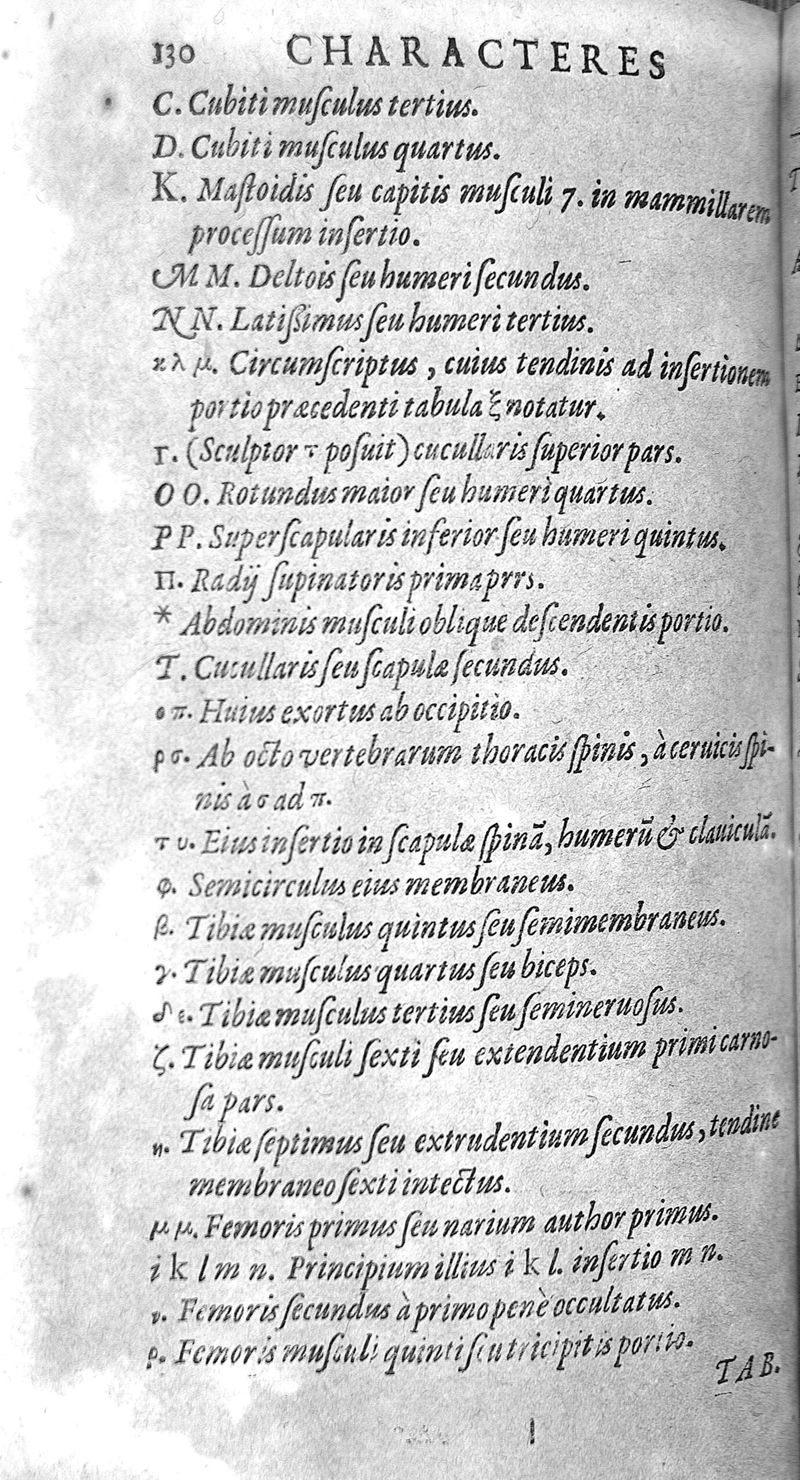 130 CHARACTERES
C. Cubiti muſculus tertius.
D. Cubiti muſculus quartus.
K. Maſtoidis ſeu capitis muſculi 7. in mammillarem
proceſſum inſertio.
M M. Deltois ſeu humeri ſecundus.
N N. Latiſſimus ſeu humeri tertius.
κ λ μ. Circumſcriptus, cuius tendinis ad inſertionem
portio præcedenti tabula ξ notatur.
Γ. (Sculptor τ poſuit) cucullaris ſuperior pars.
O O. Rotundus maior ſeu humeri quartus.
P P. Superſcapularis inferior ſeu humeri quintus.
Π. Radij ſupinatoris prima prrs.
* Abdominis muſculi oblique deſcendentis portio.
T. Cucullaris ſeu ſcapulæ ſecundus.
ο π. Huius exortus ab occipitio.
ρ σ. Ab octo vertebrarum thoracis ſpinis, à ceruicis ſpi-
nis à σ ad π.
τ υ. Eius inſertio in ſcapulæ ſpinā, humerū & clauiculā.
φ. Semicirculus eius membraneus.
β. Tibiæ muſculus quintus ſeu ſemimembraneus.
γ. Tibiæ muſculus quartus ſeu biceps.
δ ε. Tibiæ muſculus tertius ſeu ſemineruoſus.
ζ. Tibiæ muſculi ſexti ſeu extendentium primi carno-
ſa pars.
η. Tibiæ ſeptimus ſeu extrudentium ſecundus, tendine
membraneo ſexti intectus.
μ μ. Femoris primus ſeu narium author primus.
i k l m n. Principium illius i k l. inſertio m n.
ν. Femoris ſecundus à primo penè occultatus.
ρ. Femoris muſculi quinti ſeu tricipitis portio.
TAB.